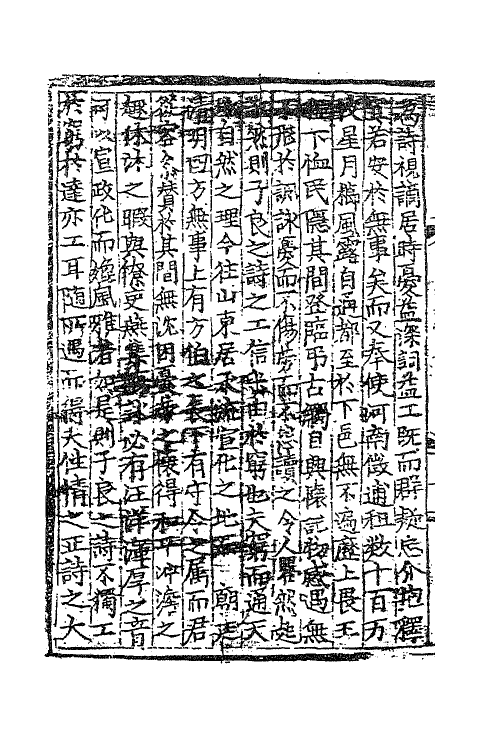 為詩視謫居時憂益深詞益工既而群疑忘分
若安於無事矣而又奉使河南徵逋租数十百万
星月櫛風露自通都至於下邑無不遍歷上畏王
下恤民隱其間登臨弔古觸目興懷託物感遇無
不形於諷詠憂而不傷旁而不怨讀之令人然
然則子良之詩之工信由於窮也夫窮而通天
自然之理今往山東居承流宣化之地 朝廷
清明四方無事上有方伯之長下有守令之屬而君
從容贊於其間無沈困憂之懷得和平沖澹之
趣休沐之暇與僚吏燕集詠必有汪洋渾厚之音
可以宣政化而續風雅者如是則子良之詩不獨工
於窮於達亦工耳隨所遇而得夫性情之正詩之大